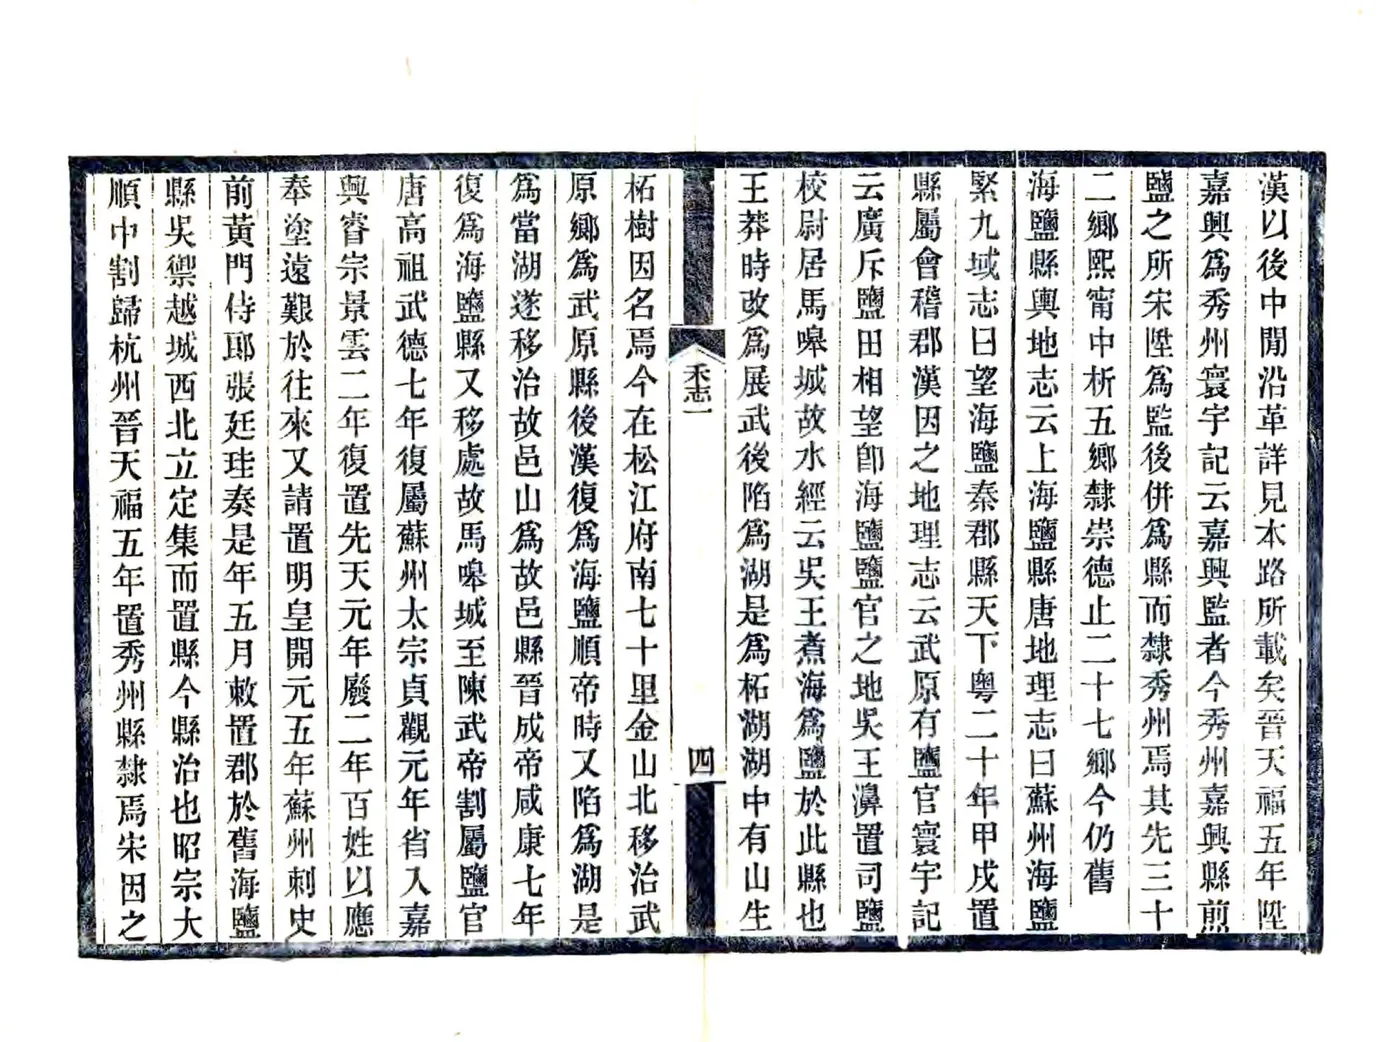 漢以後中間沿革詳見本路所載矣晉天福五年陞
嘉興爲秀州寰宇記云嘉興監者今秀州嘉興縣煎
鹽之所宋陞爲監後併爲縣而隸秀州焉其先三十
二鄉熙甯中析五鄉隸崇德止二十七鄉今仍舊
海鹽縣輿地志云上海鹽縣唐地理志曰蘇州海鹽
緊九域志曰望海鹽秦郡縣天下粵二十年甲戌置
縣屬會稽郡漢因之地理志云武原有鹽官寰宇記
云廣斥鹽田相望卽海鹽鹽官之地吳王濞置司鹽
校尉居馬嘷城故水經云吳王煮海爲鹽於此縣也
王莽時改爲展武後陷爲湖是爲柘湖湖中有山生
禾志一
四
柘樹因名焉今在松江府南七十里金山北移治武
原鄉爲武原縣後漢復爲海鹽順帝時又陷爲湖是
爲當湖遂移治故邑山爲故邑縣晉成帝咸康七年
復爲海鹽縣又移處故馬嘷城至陳武帝割屬鹽官
唐高祖武德七年復屬蘇州太宗貞觀元年省入嘉
興睿宗景雲二年復置先天元年廢二年百姓以應
奉塗遠艱於往來又請置明皇開元五年蘇州刺史
前黃門侍郎張廷珪奏是年五月敕置郡於舊海鹽
縣吳禦越城西北立定集而置縣今縣治也昭宗大
順中割歸杭州晉天福五年置秀州縣隸焉宋因之